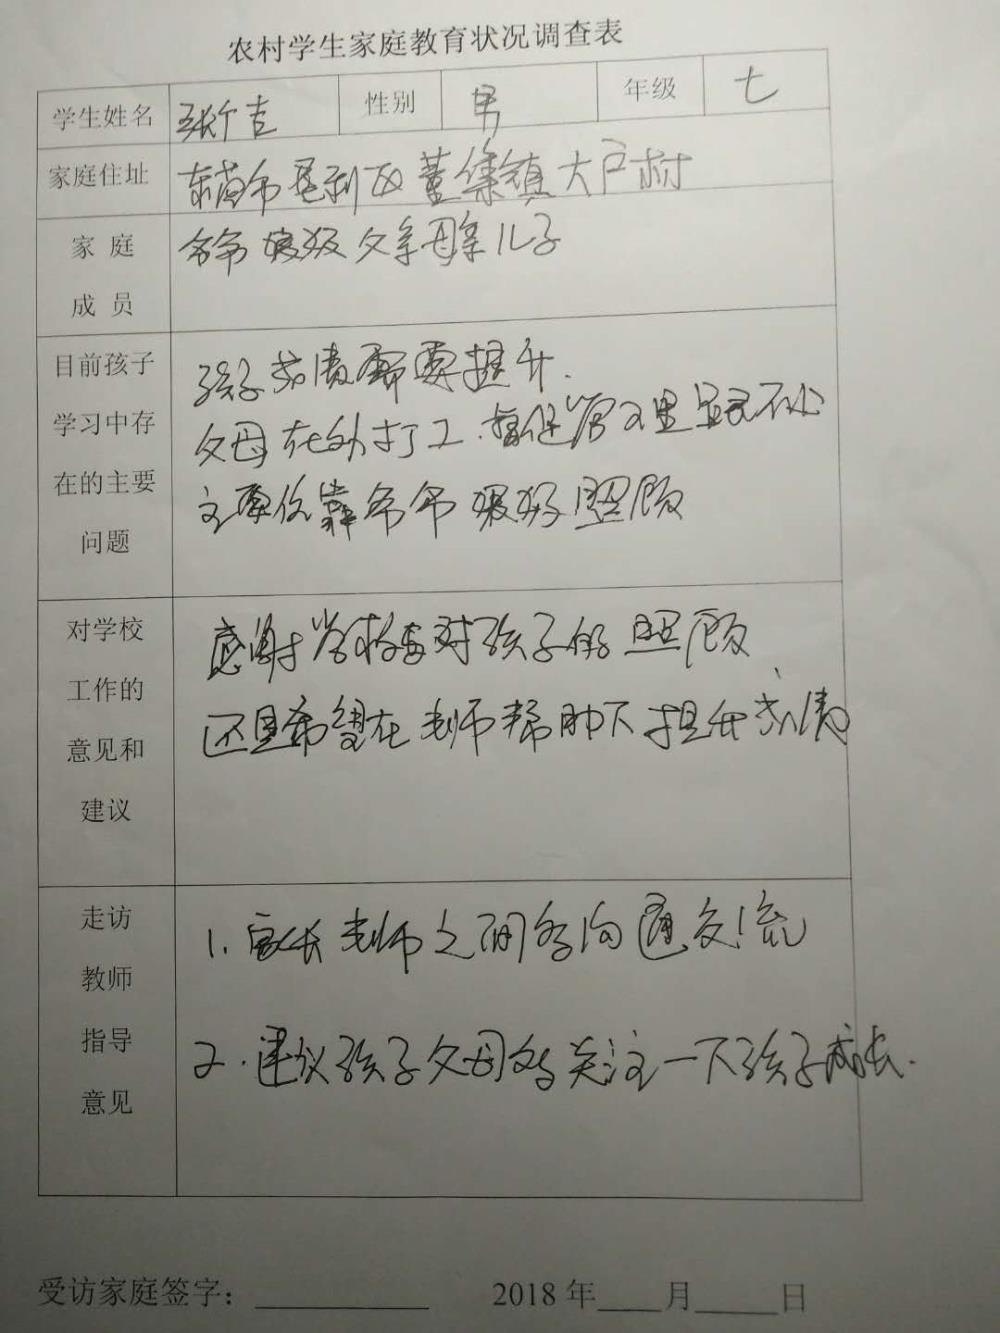 农村学生家庭教育状况调查表
学生姓名 张个吉 性别 男 年级 七
家庭住址 东营市垦利区董集镇大户村
家庭 爷爷 奶奶 父亲母亲儿子
成员
目前孩子 孩子成绩需要提升.
学习中存 父母在外打工.督促管理显示不少
在的主要 主要依靠爷爷 奶奶照顾
问题
对学校 感谢学校对孩子的照顾
工作的 还是希望在老师帮助下提升成绩
意见和
建议
走访 1.家长老师之间多沟通交流
教师
指导 2.建议孩子父母多关注一下孩子成长.
意见
受访家庭签字: 2018年 月 日